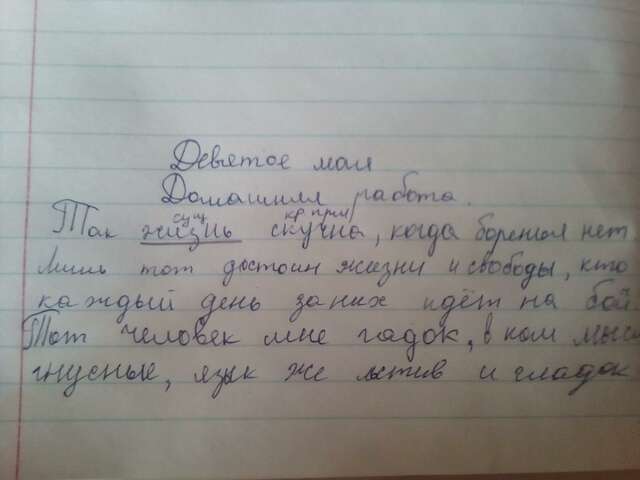 Девятое мая
Домашняя работа.
сущ кр прил
Так жизнь скучна, когда боренья нет.
Лишь тот достоин жизни и свободы, кто
каждый день за них идёт на бой.
Тот человек мне гадок, в ком мыс
гнусные, язык же льстив и гладок